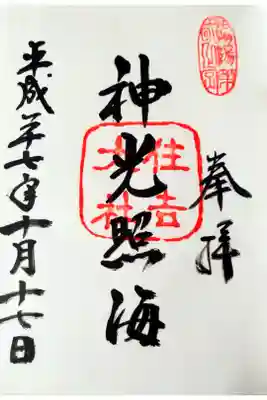 奉拝
神光照海
住吉
大社
平成廿七年十月十七日